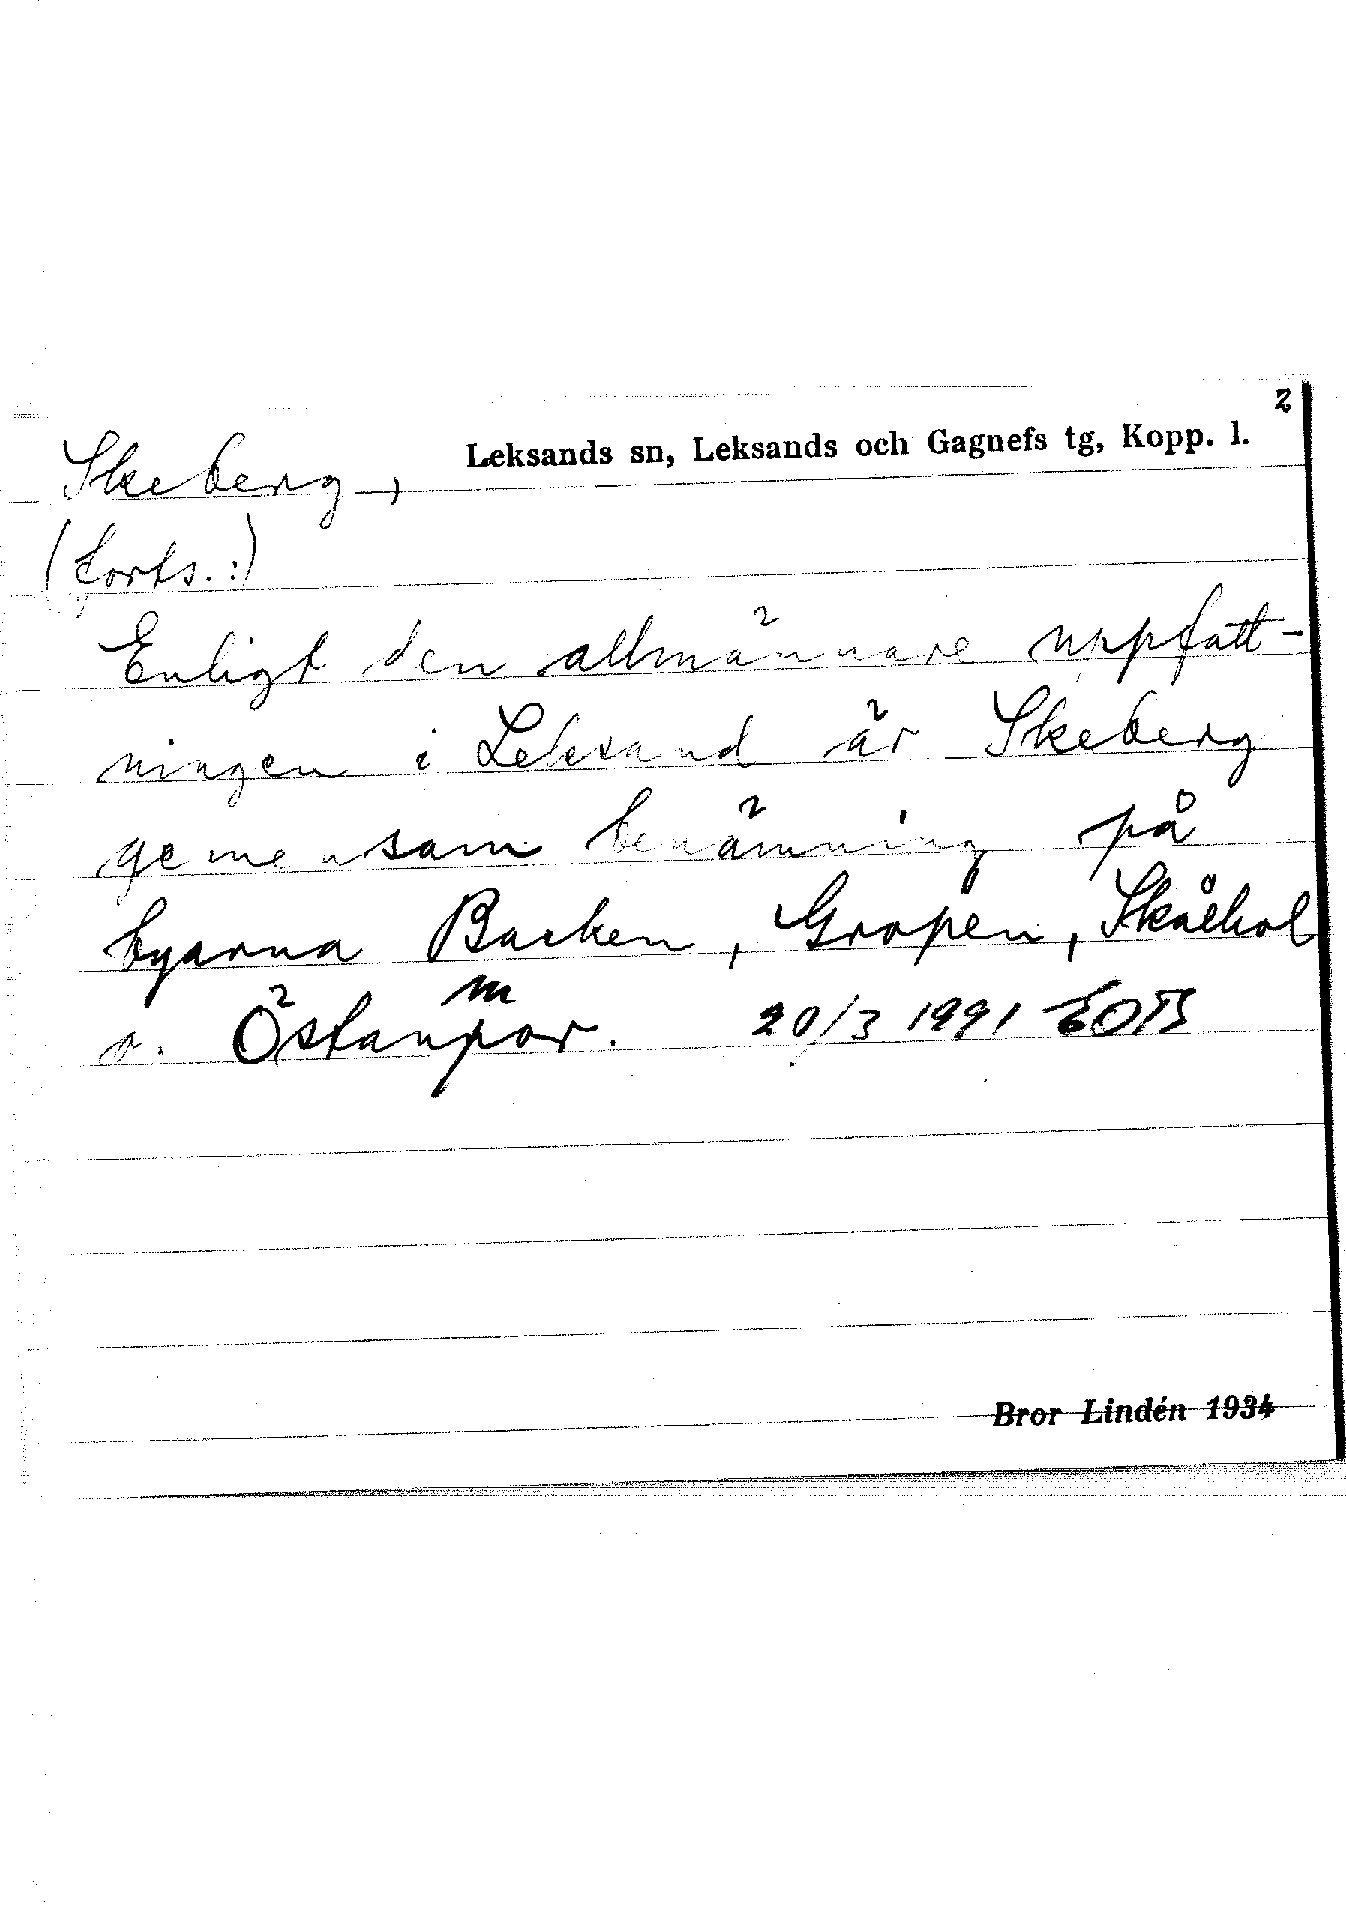 2
Leksands sn, Leksands och Gagnefs tg, Kopp. l.
Skeberg,
(forts.:)
Enligt den allmännare uppfatt-
ningen i Leksand är Skeberg
gemensam benämning på
byarna Backen, Gropen, Skålhol
o. Östanmor. 20/3 1991 EOTB
Bror Lindén 1934